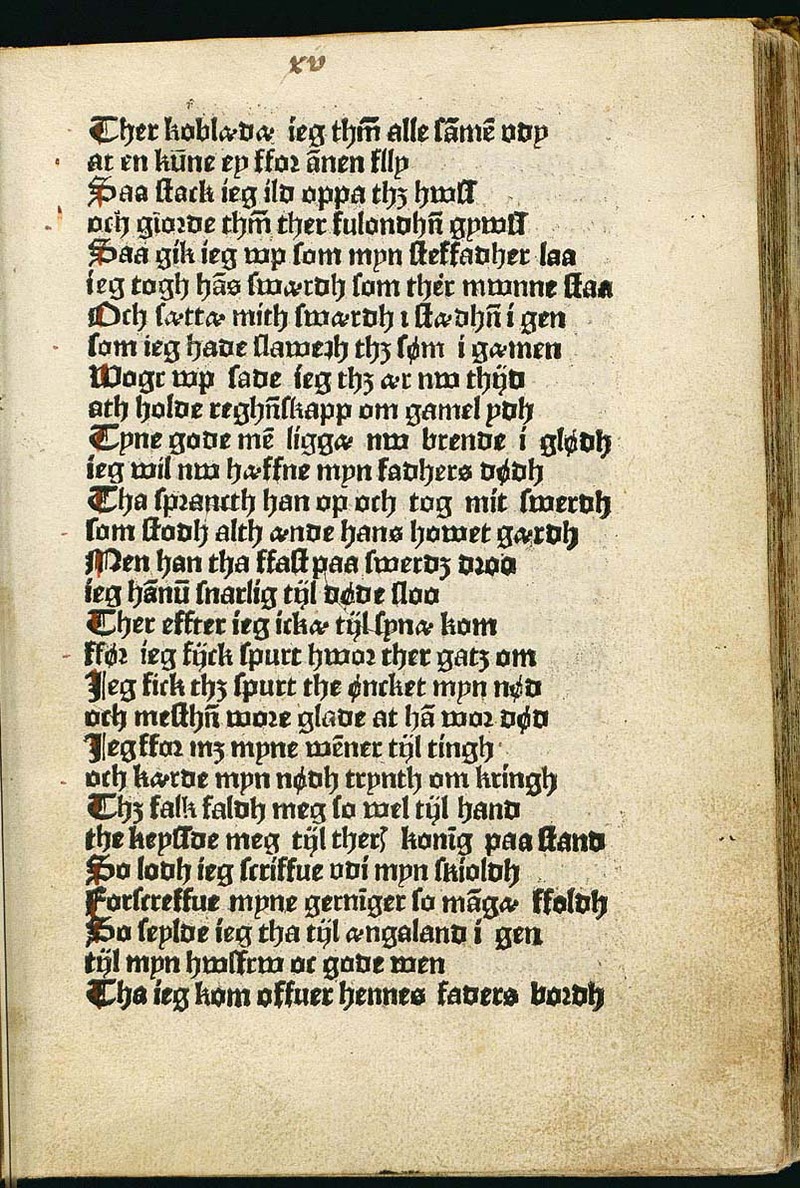 xv
Ther koblædæ ieg thm̄ alle sāmē vdy
at en kūne ey ffor ānen flly
Saa stack ieg ild oppa thꝫ hwsſ
och giorde thm̄ ther fulondhn̄ gywsſ
Saa gik ieg wp som myn steffadher laa
ieg togh hās swærdh som ther mwnne staa
Och sættæ mith swærdh i stædhn̄ i gen
som ieg hade slaweth thꝫ søm i gæmen
Wogr wp sade ieg thꝫ ær nw thijd
ath holde reghn̄skapp om gamel ydh
Tyne gode mē liggæ nw brende i glødh
ieg wil nw hæffne myn fadhers dødh
Tha sprancth han op och tog mit swerdh
som stodh alth ænde hans howet gærdh
Men han tha ffast paa swerdꝫ droo
ieg hānū snarlig tijl døde sloo
Ther effter ieg ickæ tijl synæ kom
ffør ieg fijck spurt hwor ther gatꝫ om
Jeg fick thꝫ spurt the øncket myn nød
och mesthn̄ wore glade at hā wor død
Jeg ffor mꝫ myne wēner tijl tingh
och kærde myn nødh trynth om kringh
Thꝫ falk faldh meg so wel tijl hand
the keysde meg tijl thers konīg paa stand
So lodh ieg scriffue vdi myn skioldh
Forscreffue myne gernīger so māgæ ffoldh
So seylde ieg tha tijl ængaland i gen
tijl myn hwsfrw oc gode wen
Tha ieg kom offuer hennes faders bordh